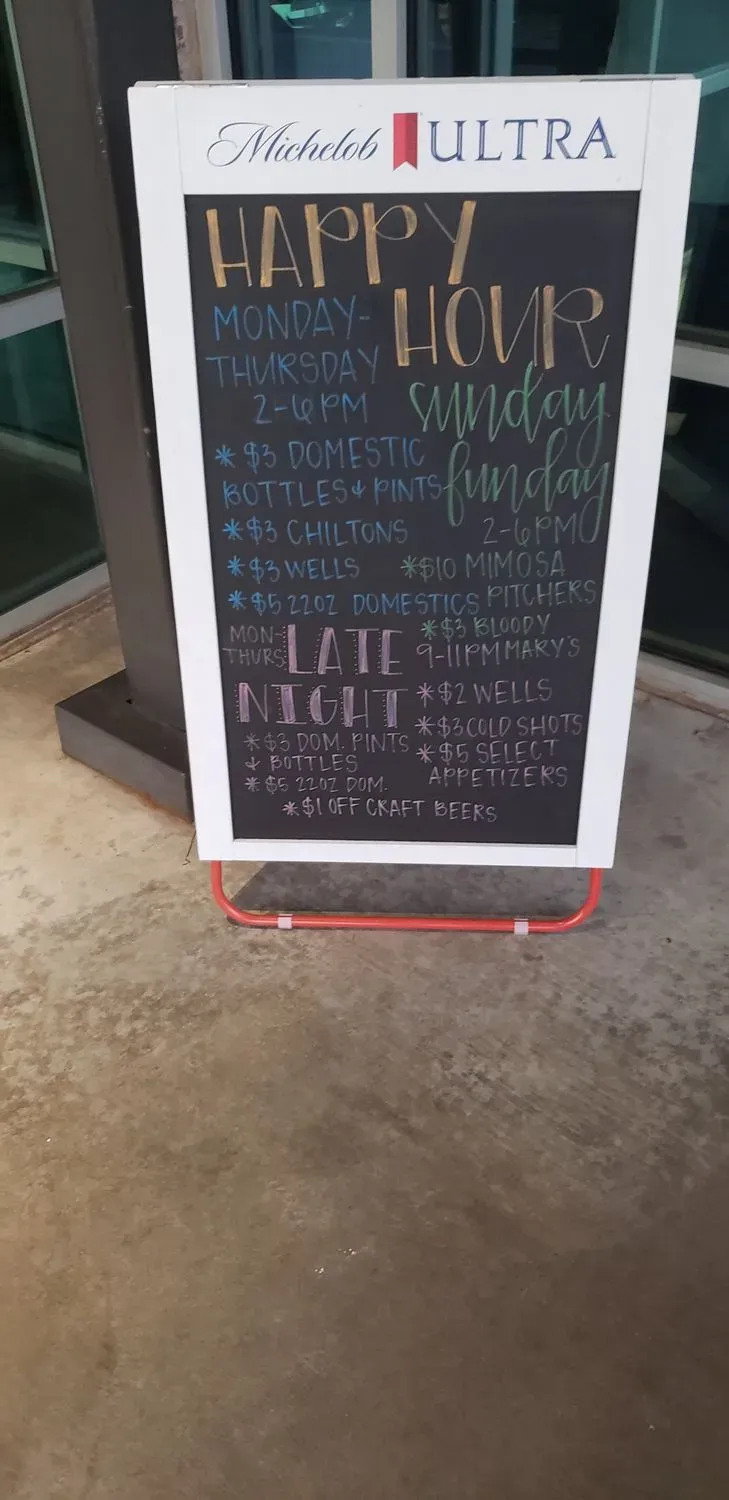 Michelob ULTRA
HAPPY
HOUR
MONDAY-
THURSDAY
2-6PM
* $3 DOMESTIC
BOTTLES & PINTS
* $3 CHILTONS
* $3 WELLS
* $5 22OZ DOMESTICS
sunday
funday
2-6PM
* $10 MIMOSA
PITCHERS
* $3 BLOODY
MARY'S
MON-
THURS
LATE
NIGHT
9-11PM
* $3 DOM. PINTS
& BOTTLES
* $5 22OZ DOM.
* $2 WELLS
* $3 COLD SHOTS
* $5 SELECT
APPETIZERS
* $1 OFF CRAFT BEERS